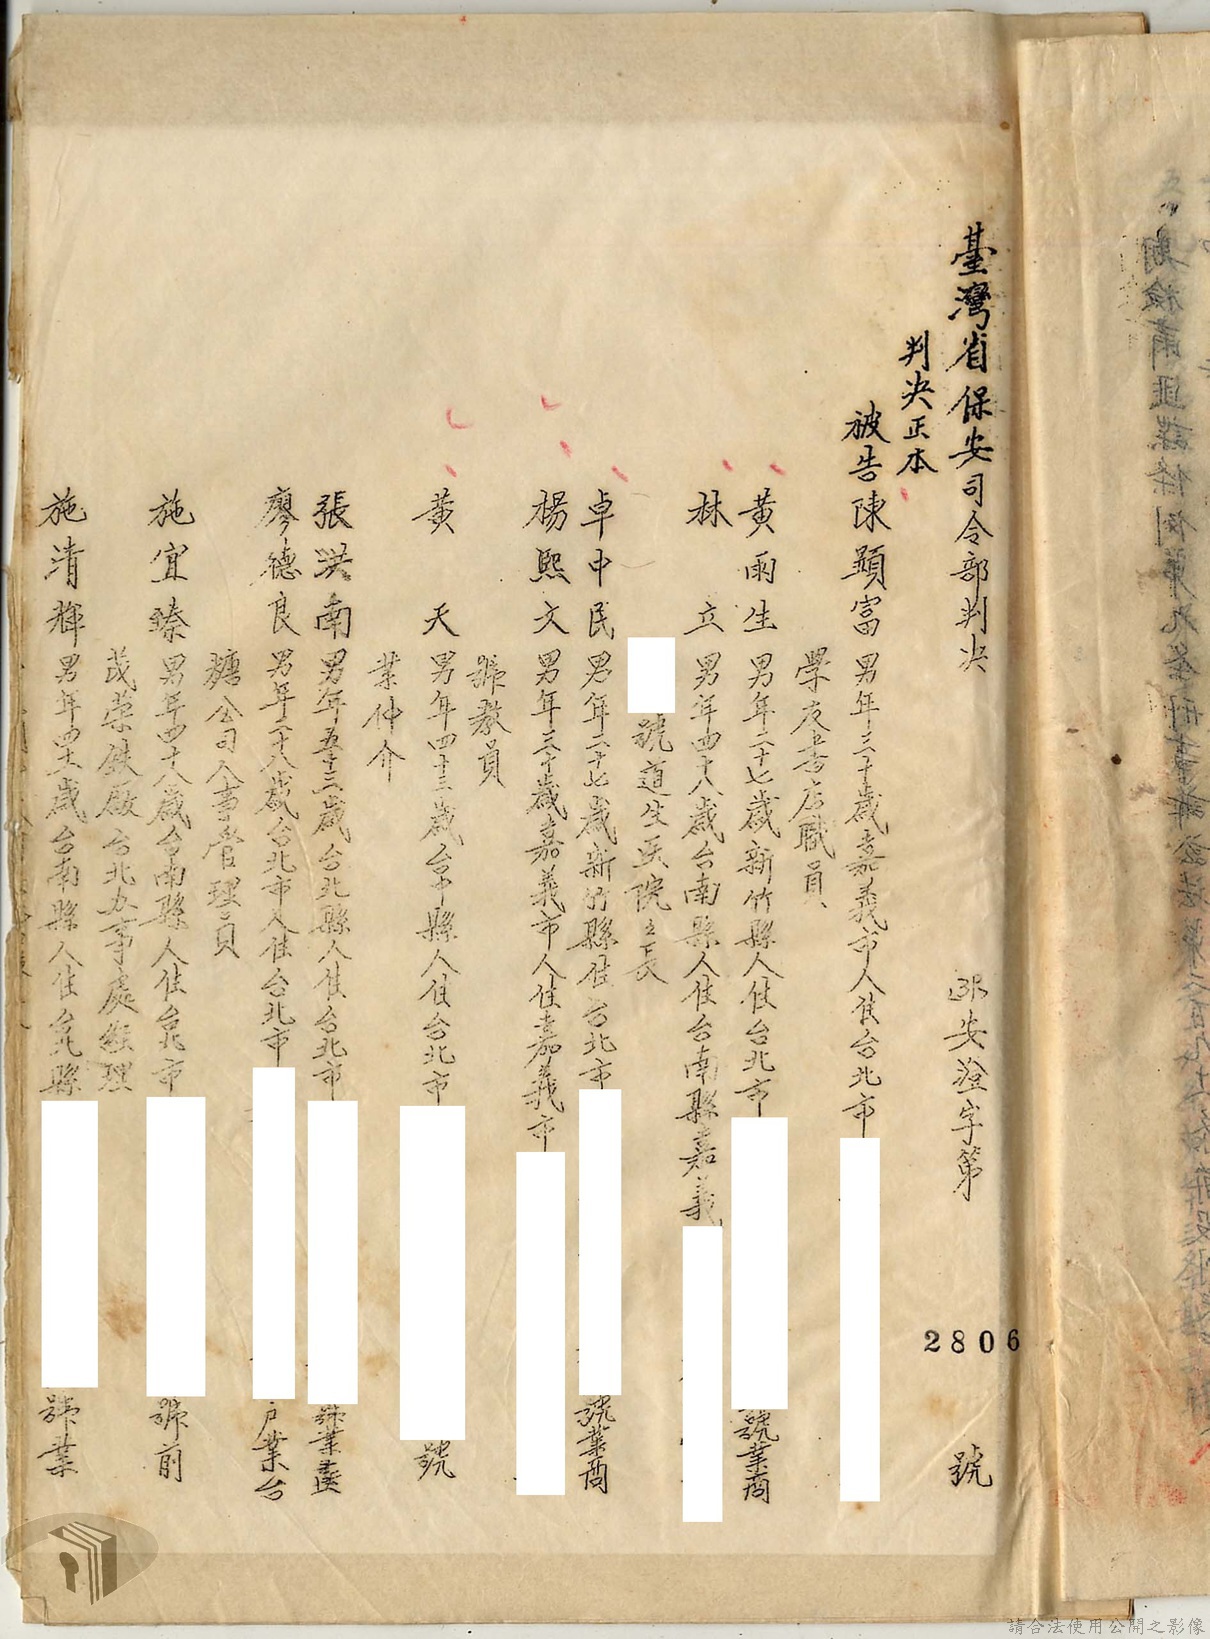 臺灣省保安司令部判決
安澄字第2806號
判決正本
被告陳顯富 男年三十歲嘉義市人住台北市
學友書店職員
黃雨生 男年二十七歲新竹縣人住台北市 號業商
林立 男年四十八歲台南縣人住台南縣嘉義
號道生医院院長
卓中民 男年二十七歲新竹縣住台北市 號業商
楊熙文 男年三十歲嘉義市人住嘉義市
號教員
黃天 男年四十三歲台中縣人住台北市 號
業仲介
張洪南 男年五十三歲台北縣人住台北市 號業醫
廖德良 男年二十八歲台北市人住台北市 戶業台
糖公司人事管理員
施宜臻 男年四十八歲台南縣人住台北市 號前
茂榮鉄廠台北办事處經理
施清輝 男年四十歲台南縣人住台北縣 號業
請合法使用公開之影像